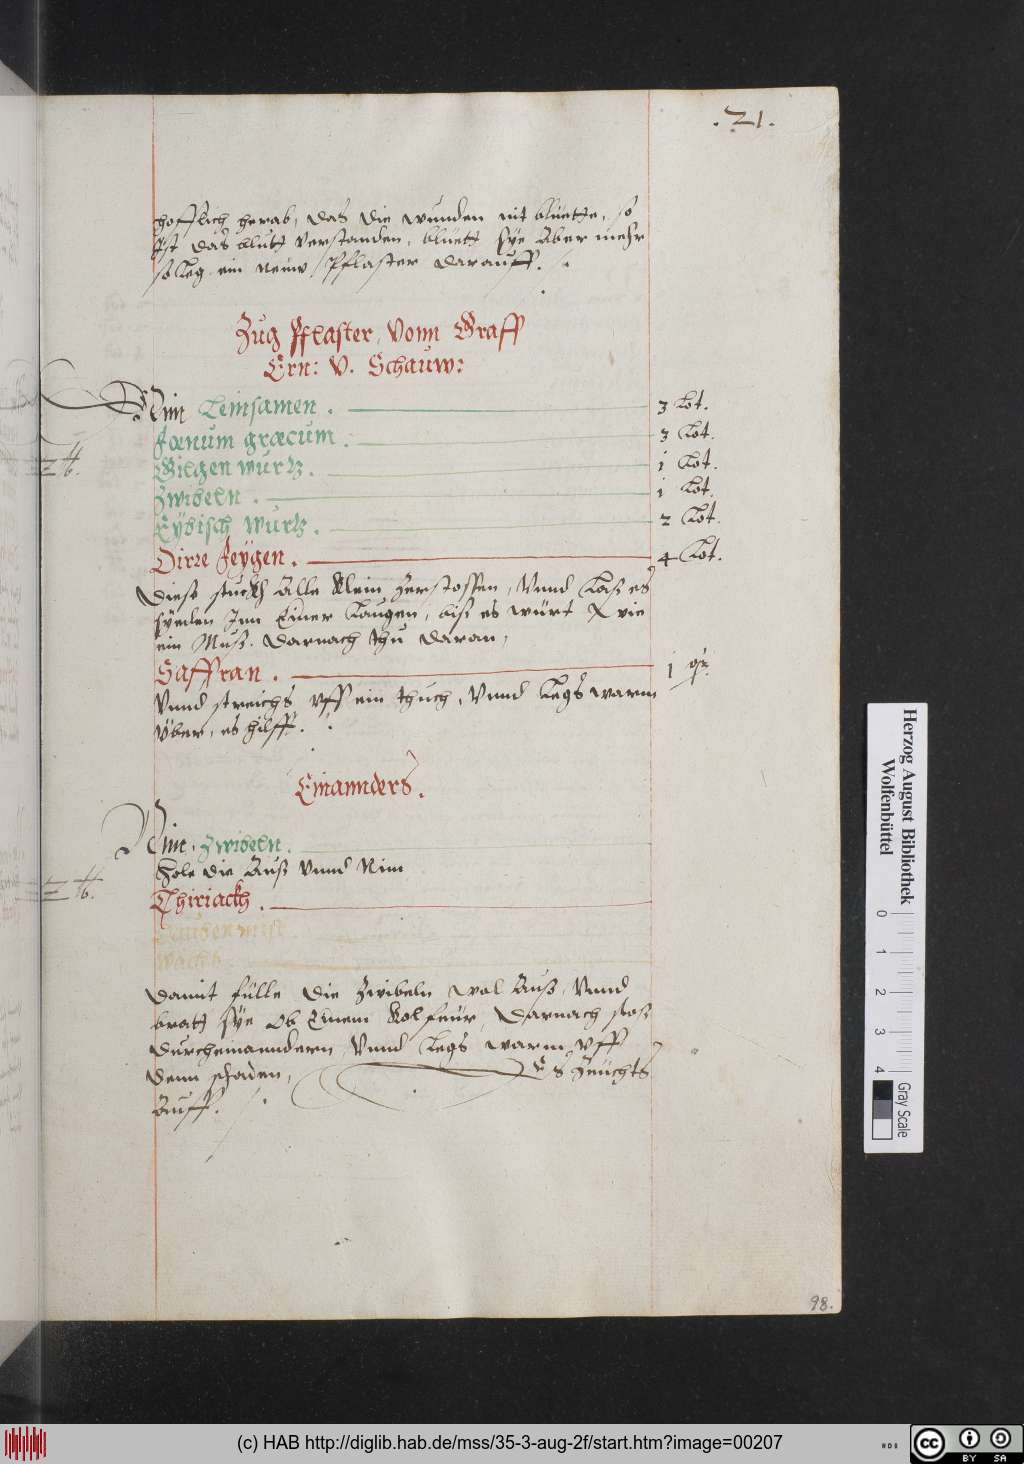 .21.
hofflich herab, das die wunden nit bluette, so
Ist das blutt verstanden, bluett sye Aber mehr
so Leg ein neuw Pflaster darauff.
Zug Pflaster, Vonn Graff
Ern: V. Schauw:
Nim Leinsamen. 3 Lot.
Fœnum græcum. 3 Lot.
Gilgen wurtz. 1 Lot.
Zwibeln. 1 Lot.
Eybisch wurtz. 2 Lot.
Dirre Feygen. 4 Lot.
Diese stuckh Alle Klein Zerstossen, Vnnd Lass es
syeden Inn Einer Laugen, biss es würt Wie
ein Muss. Darnach thu daran,
Saffran. 1 qr.
Vnnd streichs vff ein thuch, Vnnd Legs warm
vber, es hilfft.
Einannders.
Nim, Zwibeln.
Hole die Auss Vnnd Nim
Thiriackh.
Taubenmist.
Wachs.
Damit fülle die Zwibeln wol Auss, Vnnd
bratt sye Ob Einem Kolfeur, Darnach stoss
durcheinanndern, Vnnd Legs warm vff
denn schaden, Es Zeuchts
Auff.
98.
Herzog August Bibliothek
Wolfenbüttel
0 1 2 3 4
Gray Scale
(c) HAB http://diglib.hab.de/mss/35-3-aug-2f/start.htm?image=00207
cc BY SA